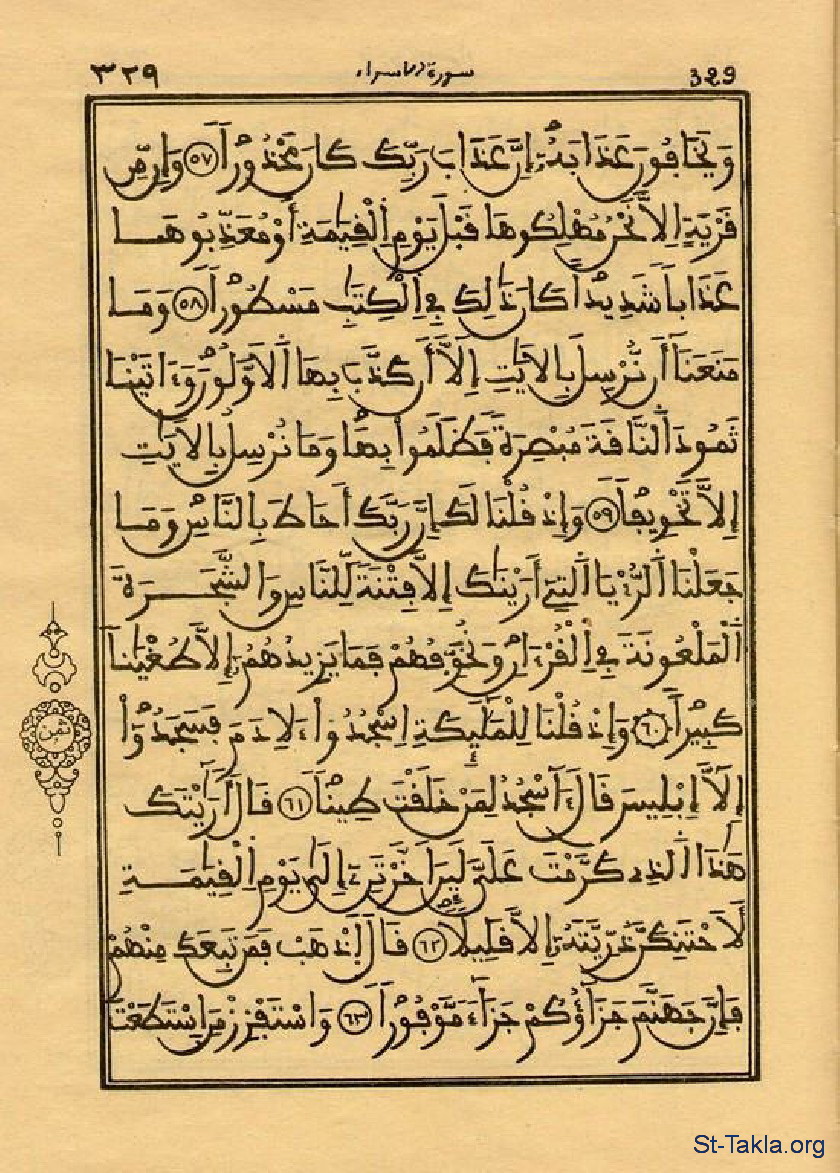 ٣٢٩ سورة الإسراء 329
وَيَخَافُونَ عَذَابَهُۥٓ إِنَّ عَذَابَ رَبِّكَ كَانَ مَحْذُوراً ٥٧ وَإِن مِّن
قَرْيَةٍ إِلَّا نَحْنُ مُهْلِكُوهَا قَبْلَ يَوْمِ اِ۬لْقِيَٰمَةِ أَوْ مُعَذِّبُوهَا
عَذَاباً شَدِيداً كَانَ ذَٰلِكَ فِے اِ۬لْكِتَٰبِ مَسْطُوراً ٥٨ وَمَا
مَنَعَنَآ أَن نُّرْسِلَ بِالَايَٰتِ إِلَّآ أَن كَذَّبَ بِهَا اَ۬لَاوَّلُونَ وَءَاتَيْنَا
ثَمُودَ اَ۬لنَّاقَةَ مُبْصِرَةً فَظَلَمُواْ بِهَا وَمَا نُرْسِلُ بِالَايَٰتِ
إِلَّا تَخْوِيفاً ٥٩ وَإِذْ قُلْنَا لَكَ إِنَّ رَبَّكَ أَحَاطَ بِالنَّاسِ وَمَا
جَعَلْنَا اَ۬لرُّءْيَا اَ۬لتِےٓ أَرَيْنَٰكَ إِلَّا فِتْنَةً لِّلنَّاسِ وَالشَّجَرَةَ
اَ۬لْمَلْعُونَةَ فِے اِ۬لْقُرْءَانِ وَنُخَوِّفُهُمْ فَمَا يَزِيدُهُمُۥٓ إِلَّا طُغْيَٰناً
كَبِيراً ٦٠ وَإِذْ قُلْنَا لِلْمَلَٰٓئِكَةِ اِ۟سْجُدُواْ ءَلِادَمَ فَسَجَدُوٓاْ
إِلَّآ إِبْلِيسَ قَالَ ءَآسْجُدُ لِمَنْ خَلَقْتَ طِيناً ٦١ قَالَ أَرَٰٓيْتَكَ
هَٰذَا اَ۬لذِے كَرَّمْتَ عَلَيَّ لَئِنَ اَخَّرْتَنِۦٓ إِلَىٰ يَوْمِ اِ۬لْقِيَٰمَةِ
لَأَحْتَنِكَنَّ ذُرِّيَّتَهُۥٓ إِلَّا قَلِيلاً ٦٢ قَالَ اَ۪ذْهَبْ فَمَن تَبِعَكَ مِنْهُمْ
فَإِنَّ جَهَنَّمَ جَزَآؤُكُمْ جَزَآءً مَّوْفُوراً ٦٣ وَاسْتَفْزِزْ مَنِ اِ۪سْتَطَعْتَ
ثمن
St-Takla.org